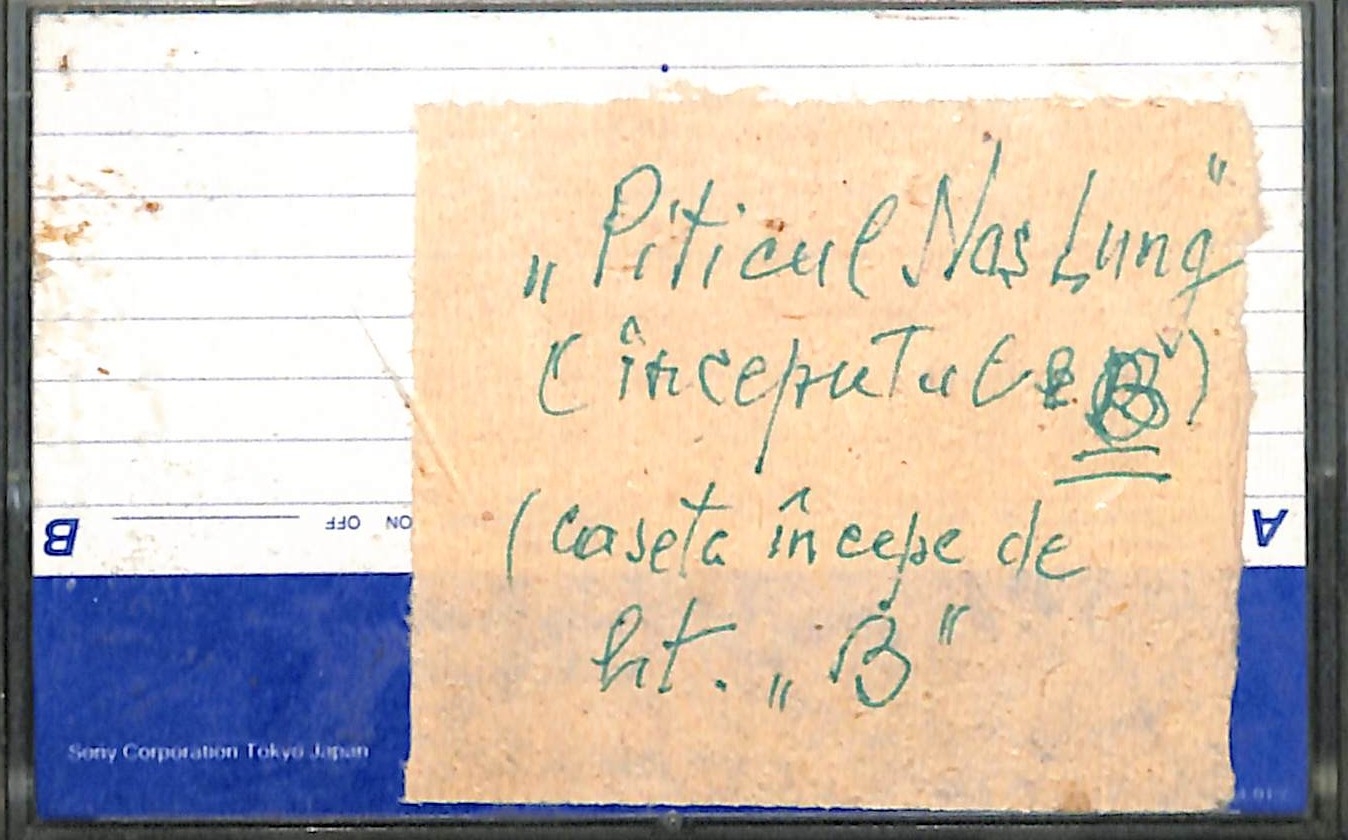 „Piticul Nas Lung”
(începutul e B)
(caseta începe de
lit. „B”
B
ON OFF
A
Sony Corporation Tokyo Japan